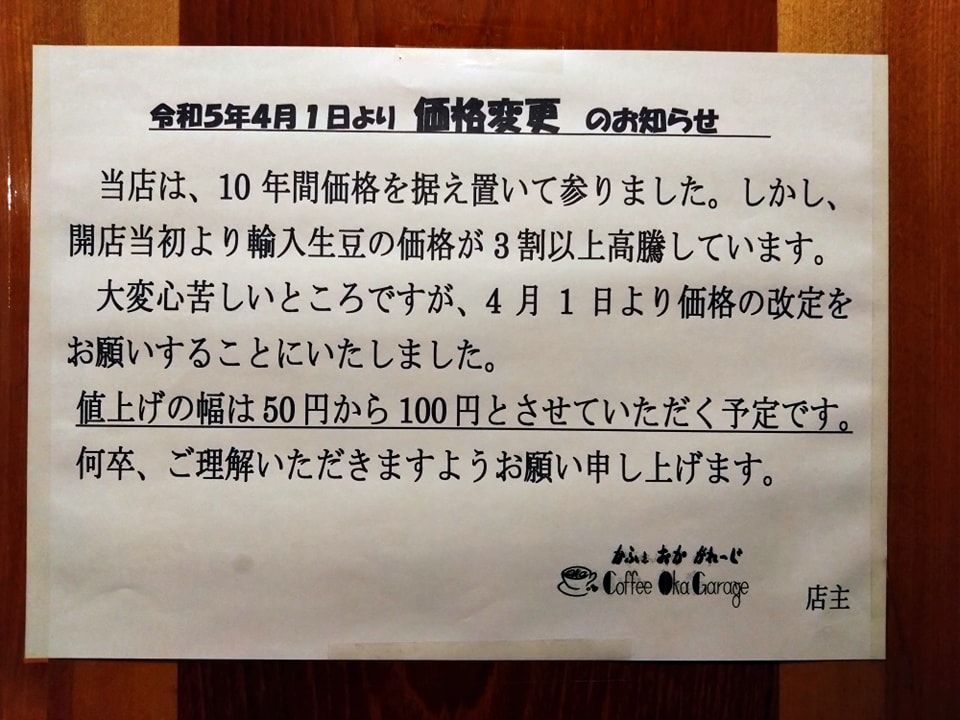 令和5年4月1日より 価格変更 のお知らせ
当店は、10年間価格を据え置いて参りました。しかし、
開店当初より輸入生豆の価格が3割以上高騰しています。
大変心苦しいところですが、4月1日より価格の改定を
お願いすることにいたしました。
値上げの幅は50円から100円とさせていただく予定です。
何卒、ご理解いただきますようお願い申し上げます。
かふぇ おか がれーじ
Coffee Oka Garage
店主